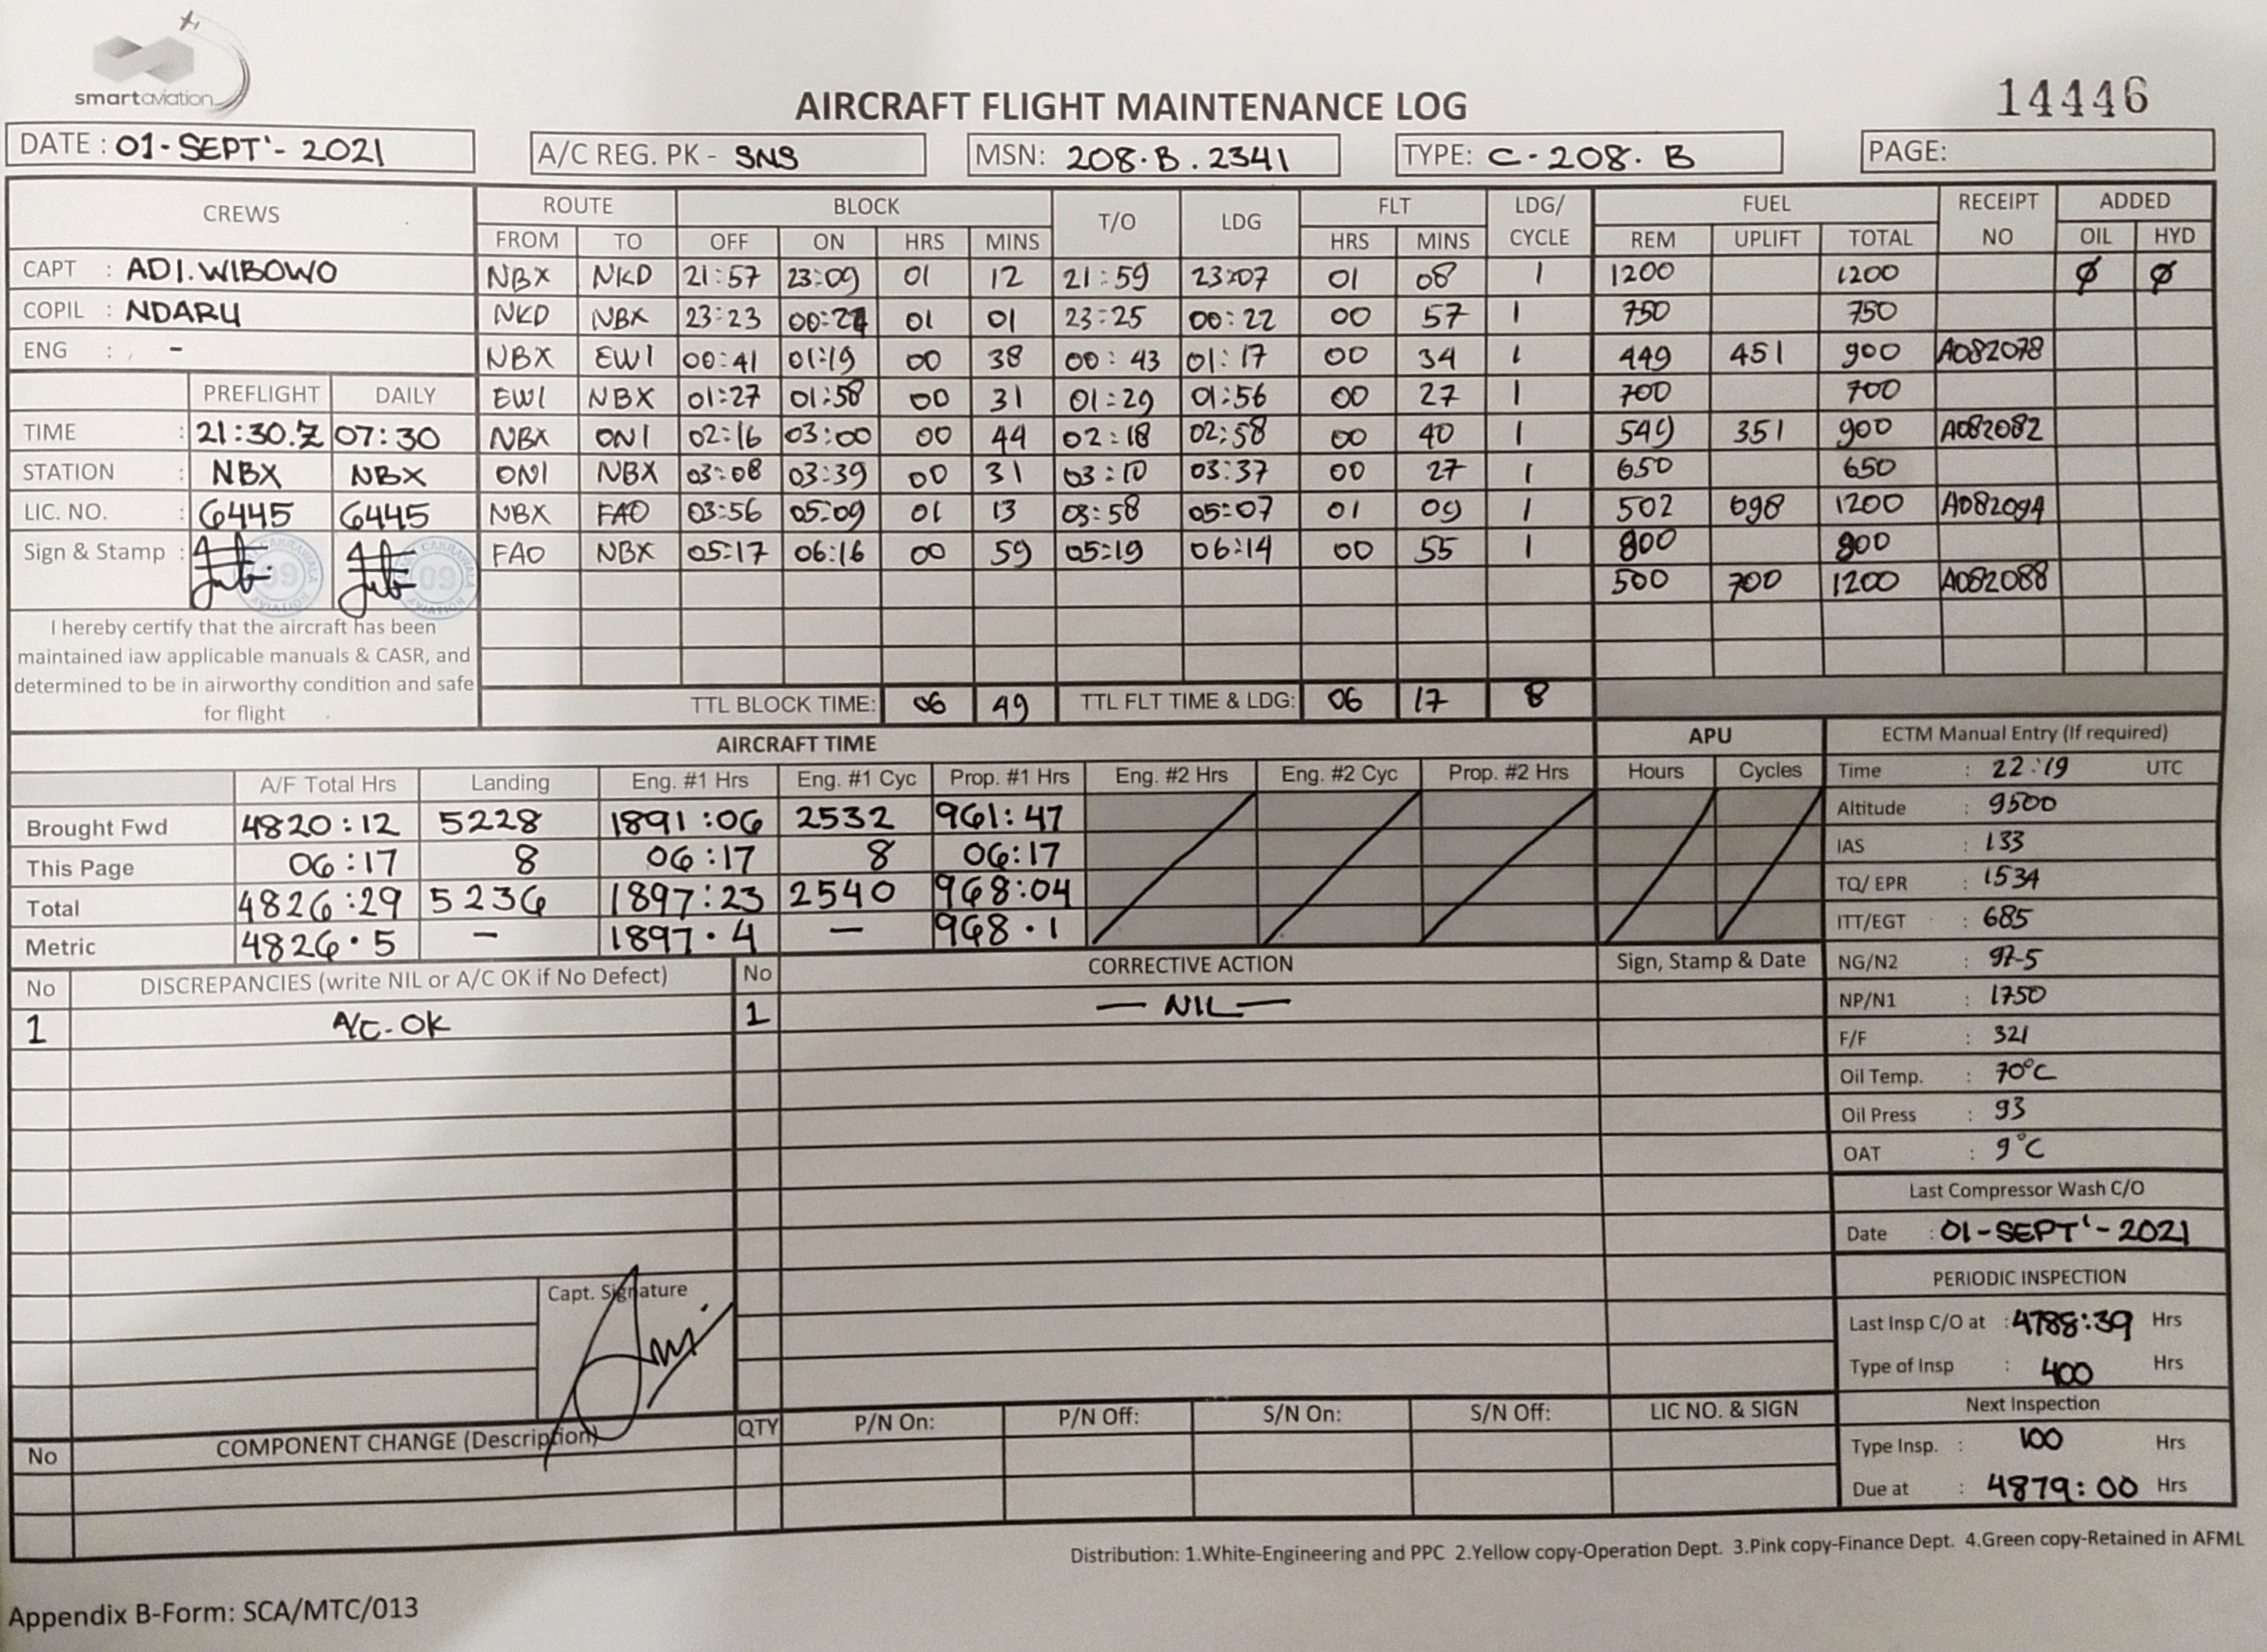 smartaviation
AIRCRAFT FLIGHT MAINTENANCE LOG
14446
DATE : 01-SEPT'- 2021
A/C REG. PK - SNS
MSN: 208.B.2341
TYPE: C-208. B
PAGE:
CREWS
ROUTE BLOCK T/O LDG FLT LDG/ CYCLE FUEL RECEIPT NO ADDED
FROM TO OFF ON HRS MINS HRS MINS REM UPLIFT TOTAL OIL HYD
CAPT : ADI.WIBOWO
COPIL : NDARU
ENG : -
NBX NKD 21:57 23:09 01 12 21:59 23:07 01 08 1 1200 1200 ø ø
NKD NBX 23:23 00:24 01 01 23:25 00:22 00 57 1 750 750
NBX EWI 00:41 01:19 00 38 00:43 01:17 00 34 1 449 451 900 A082078
EWI NBX 01:27 01:58 00 31 01:29 01:56 00 27 1 700 700
NBX ONI 02:16 03:00 00 44 02:18 02:58 00 40 1 549 351 900 A082082
ONI NBX 03:08 03:39 00 31 03:10 03:37 00 27 1 650 650
NBX FAO 03:56 05:09 01 13 03:58 05:07 01 09 1 502 698 1200 A082094
FAO NBX 05:17 06:16 00 59 05:19 06:14 00 55 1 800 800
500 700 1200 A082088
PREFLIGHT DAILY
TIME : 21:30.Z 07:30
STATION : NBX NBX
LIC. NO. : 6445 6445
Sign & Stamp :
09 AVIATION
09 AVIATION
I hereby certify that the aircraft has been
maintained iaw applicable manuals & CASR, and
determined to be in airworthy condition and safe
for flight
TTL BLOCK TIME: 06 49 TTL FLT TIME & LDG: 06 17 8
AIRCRAFT TIME
APU
A/F Total Hrs Landing Eng. #1 Hrs Eng. #1 Cyc Prop. #1 Hrs Eng. #2 Hrs Eng. #2 Cyc Prop. #2 Hrs Hours Cycles
Brought Fwd 4820:12 5228 1891:06 2532 961:47
This Page 06:17 8 06:17 8 06:17
Total 4826:29 5236 1897:23 2540 968:04
Metric 4826.5 - 1897.4 - 968.1
ECTM Manual Entry (If required)
Time : 22:19 UTC
Altitude : 9500
IAS : 133
TQ/ EPR : 1534
ITT/EGT : 685
NG/N2 : 97.5
NP/N1 : 1750
F/F : 321
Oil Temp. : 70°C
Oil Press : 93
OAT : 9°C
Last Compressor Wash C/O
Date : 01-SEPT'-2021
PERIODIC INSPECTION
Last Insp C/O at : 4788:39 Hrs
Type of Insp : 400 Hrs
Next Inspection
Type Insp. : 100 Hrs
Due at : 4879:00 Hrs
No DISCREPANCIES (write NIL or A/C OK if No Defect) No CORRECTIVE ACTION Sign, Stamp & Date
1 A/C-OK 1 — NIL —
Capt. Signature
No COMPONENT CHANGE (Description) QTY P/N On: P/N Off: S/N On: S/N Off: LIC NO. & SIGN
Distribution: 1.White-Engineering and PPC 2.Yellow copy-Operation Dept. 3.Pink copy-Finance Dept. 4.Green copy-Retained in AFML
Appendix B-Form: SCA/MTC/013